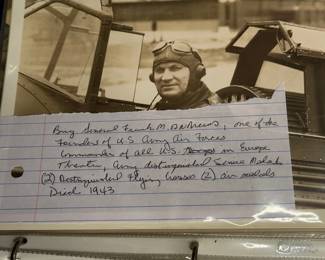 Brig General Frank M. Andrews, one of the
Founders of U.S. Army Air Forces
Commander of all U.S. Troops in Europe
Theatre, Army distinguished Service Medal
(2) Distinguished Flying Crosses (2) air medals
Died 1943